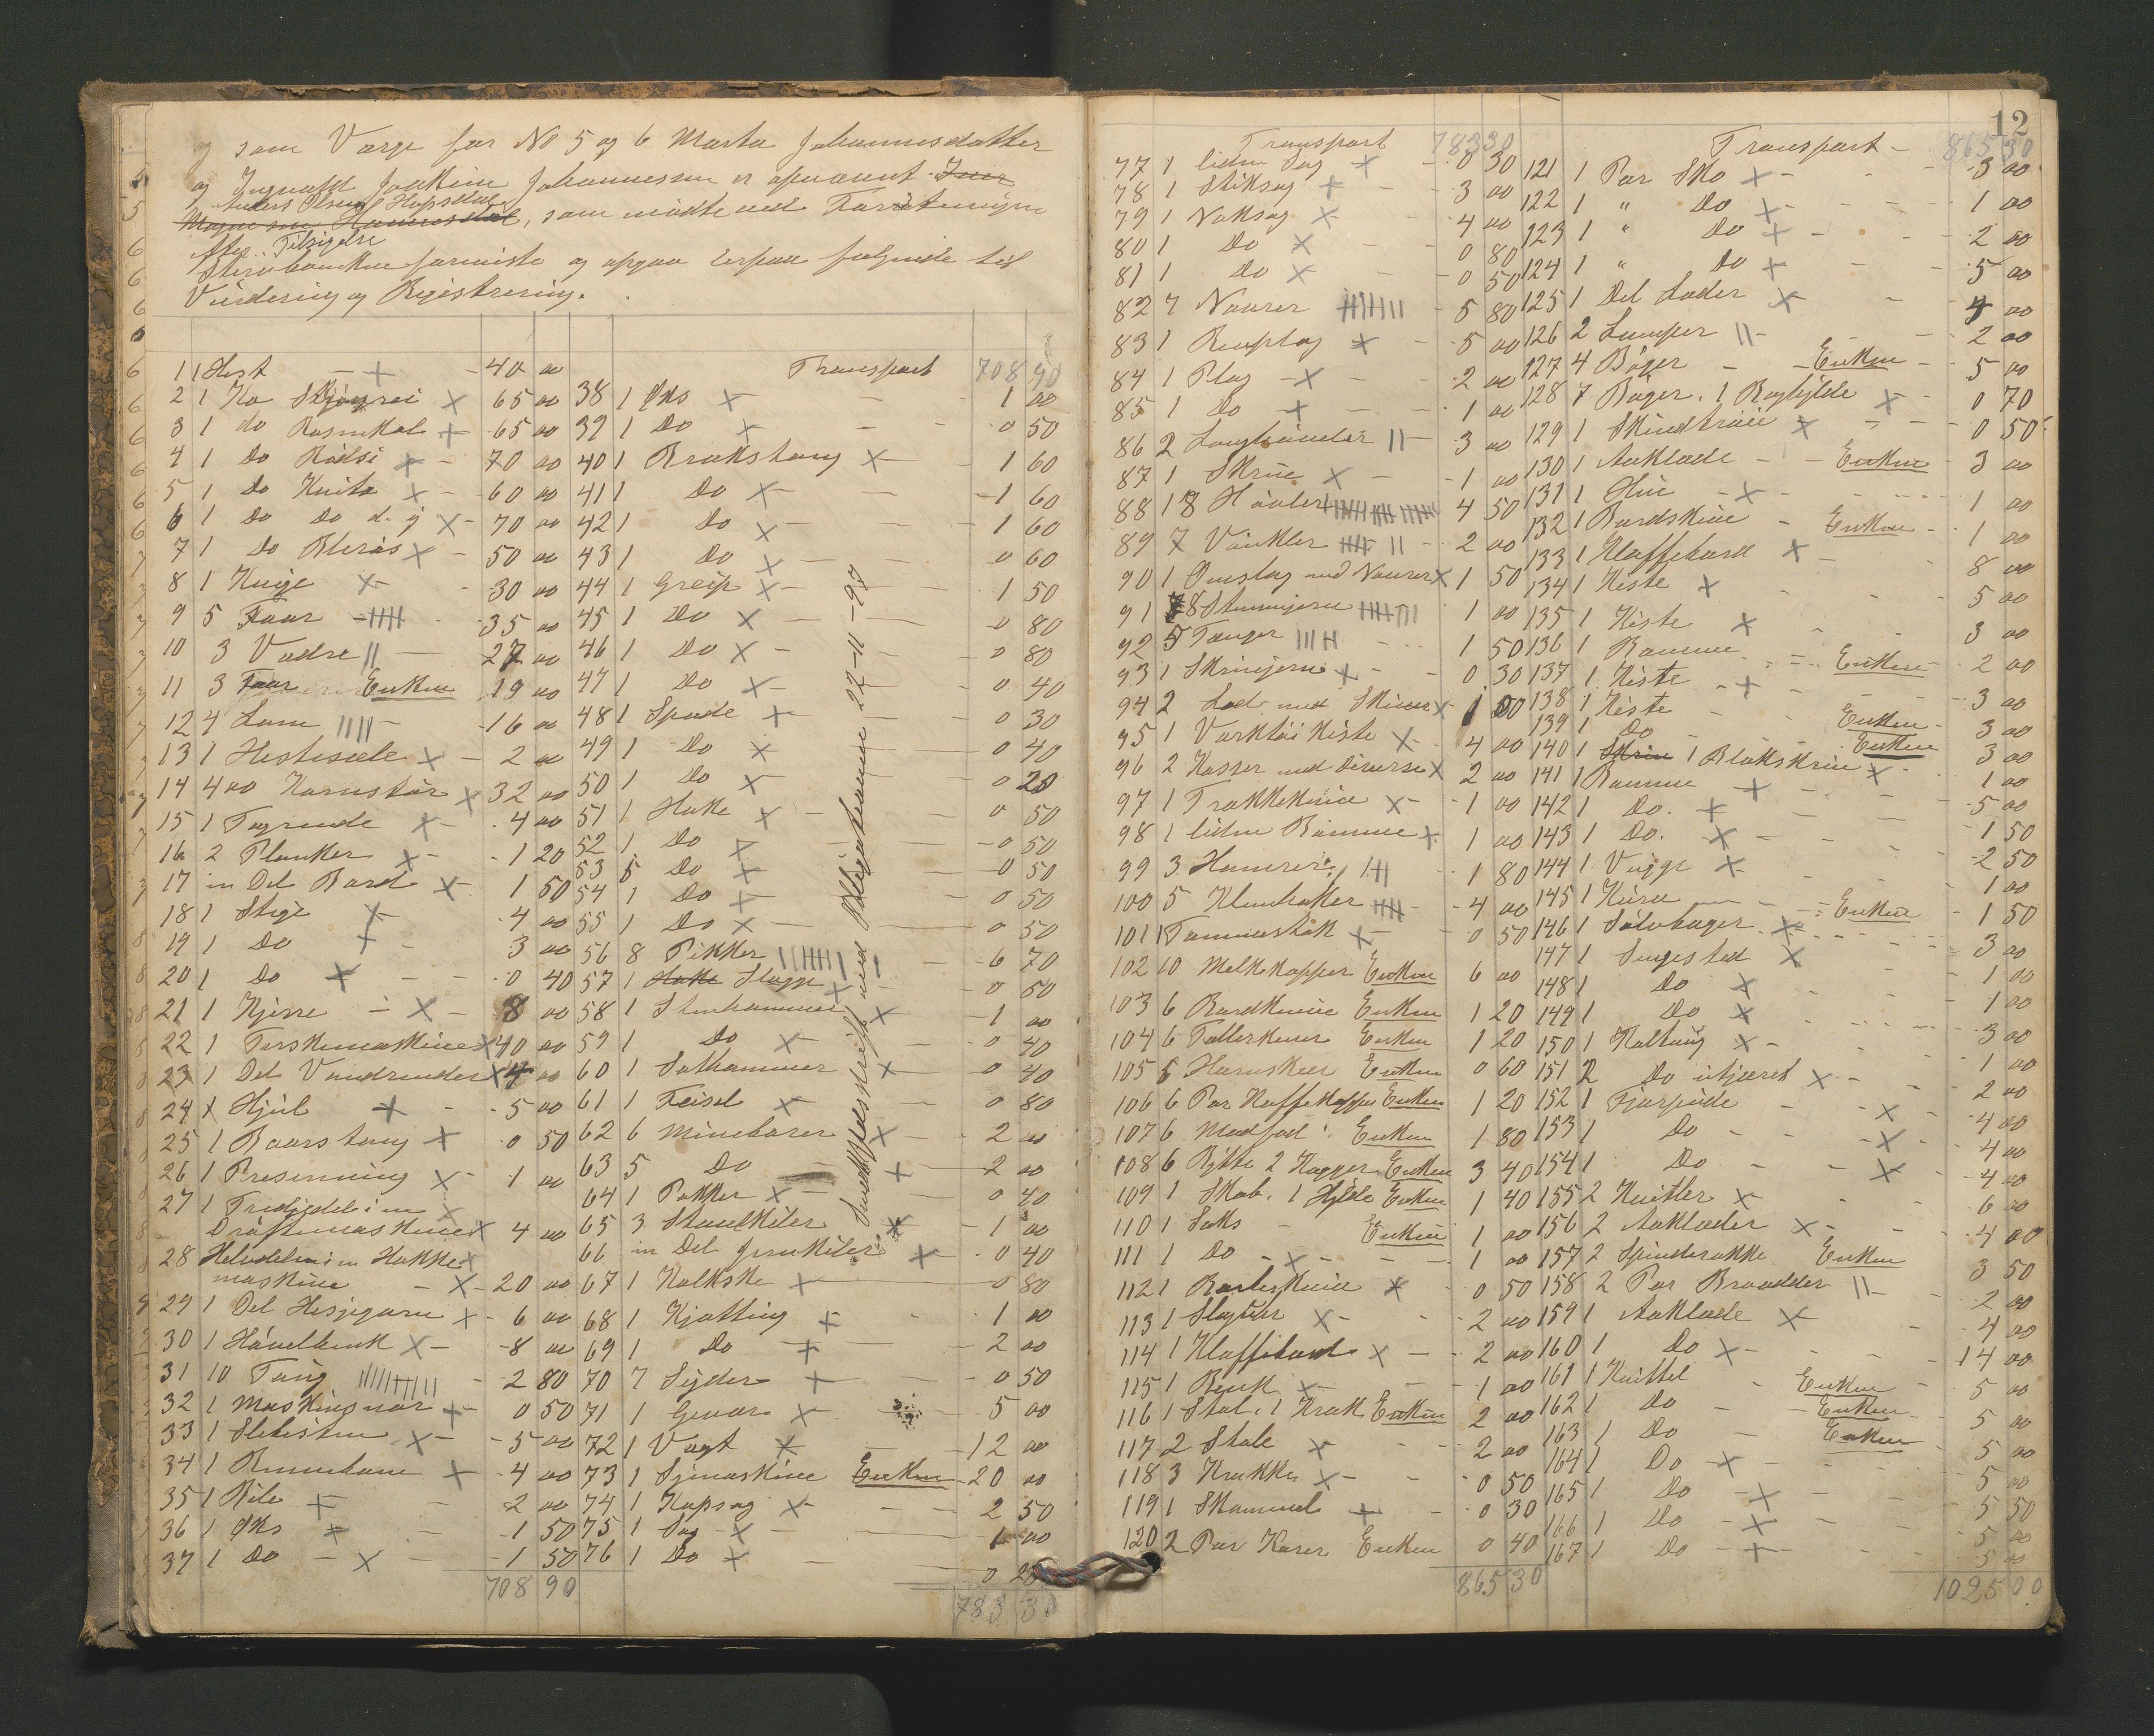 og som Værge for No 5 og 6 Marta Johannesdatter
og Ingvald Joakim Johannessen er opnævnt Iver
Anders Olsen Hopsdal
Magnesen Hannesdal, som mødte ved Forretningen
efter Tilsigelse
Stervboenken foreviste og opgav derpaa følgende til
Vurdering og Registrering.
1 1 Hest 40 00
2 1 Ko Skjönrei 65 00
3 1 do Rosenkol 65 00
4 1 Do Rödsi 70 00
5 1 Do Kvita 60 00
6 1 Do Do d. y 70 00
7 1 Do Bleros 50 00
8 1 Kvige 30 00
9 5 Faar 35 00
10 3 Vædre 27 00
11 3 Faar Enken 19 00
12 4 Lam 16 00
13 1 Hestesæle 2 00
14 400 Kornstör 32 00
15 1 Tagrende 4 00
16 2 Planker 1 20
17 en Del Bord 1 50
18 1 Stige 4 00
19 1 Do 3 00
20 1 Do 0 40
21 1 Kjerre 8 00
22 1 Terskemaskine 40 00
23 1 Del Vandrender 4 00
24 1 Hjul 5 00
25 1 Baarstang 0 50
26 1 Presenning 1 00
27 1 Trediedel i en
Dröftemaskine 4 00
28 Halvdelen i en Hakke
maskine 20 00
29 1 Del Hesjegarn 6 00
30 1 Hövelbenk 8 00
31 10 Tong 2 80
32 1 Maskingnor 0 50
33 1 Slibesten 5 00
34 1 4 00
35 1 Bile 2 00
36 1 Øks 1 50
37 1 Do 1 50
708 90
Transport 708 90
38 1 Øks 1 00
39 1 Do 0 50
40 1 Brækstang 1 60
41 1 Do 1 60
42 1 Do 1 60
43 1 Do 0 60
44 1 Greip 1 50
45 1 Do 0 80
46 1 Do 0 80
47 1 Do 0 40
48 1 Spade 0 30
49 1 Do 0 40
50 1 Do 0 20
51 1 Hakke 0 50
52 1 Do 0 50
53 5 Do 0 50
54 1 Do 0 50
55 1 Do 0 50
56 8 Pikker 6 70
57 1 Hakke Slegge 0 50
58 1 Stenhammer 1 00
59 1 Do 0 40
60 1 Sethammer 0 40
61 1 Feisel 0 80
62 6 Minebarer 2 00
63 5 Do 2 00
64 1 Pakker 0 40
65 3 Staalkiler 1 00
66 en Del Jernkiler 0 40
67 1 Kalkske 0 80
68 1 Kjetting 1 00
69 1 Do 2 00
70 7 Sigder 0 50
71 1 Gevær 5 00
72 1 Vægt 12 00
73 1 Symaskine Enken 20 00
74 1 Kapsag 2 50
75 1 Sag 1 00
76 1 Do 0 20
783 30
12
Transport 783 30
77 1 liden Sag 0 30
78 1 Stiksag 3 00
79 1 Naksag 4 00
80 1 Do 0 80
81 1 Do 0 50
82 7 Navrer 5 80
83 1 Reoplog 5 00
84 1 Plog 2 00
85 1 Do 1 00
86 2 Langhövler 3 00
87 1 Skrue 1 00
88 18 Hövler 4 50
89 7 Vinkler 2 00
90 1 Omslag med Navrer 1 50
91 8 Stemmjern 1 00
92 5 Tænger 1 50
93 1 Skruejern 0 30
94 2 Lod med Skiver 1 00
95 1 Værktöikiste 4 00
96 2 Kasser med diverse 2 00
97 1 Trakkekniv 1 00
98 1 liden Bömme 1 00
99 3 Hamrer 1 80
100 5 Klenhaker 4 00
101 1 Tommestok 0 50
102 10 Melkekopper Enken 6 00
103 6 Bordknive Enken 1 20
104 6 Tallerkener Enken 1 20
105 6 Enken 0 60
106 6 Par Kaffekopper Enken 1 20
107 6 Madfad Enken 1 80
108 6 Bytte 2 Kagger Enken 3 40
109 1 Skab, 1 Hylde Enken 1 40
110 1 Saks Enken 1 00
111 1 Do 1 00
112 1 Barberkniv 0 50
113 1 Slaguhr 2 00
114 1 Klaffebord 2 00
115 1 Benk 1 00
116 1 Stol, 1 Krak Enken 2 00
117 2 Stole 2 00
118 3 Krakke 0 50
119 1 Skammel 0 30
120 2 Par Karer Enken 0 40
865 30
Transport 865 30
121 1 Par Sko 3 00
122 1 " Do 1 00
123 1 " Do 2 00
124 1 " Do 5 00
125 1 Del Læder 4 00
126 2 Lamper 2 00
127 4 Böger Enken 5 00
128 7 Böger, 1 Boghylde 0 70
129 1 Skindtröie 0 50
130 1 Aaklæde Enken 3 00
131 1 Hue 1 00
132 1 Bordskive Enken 1 00
133 1 Klaffebord 8 00
134 1 Kiste 5 00
135 1 Kiste 3 00
136 1 Bomme Enken 2 00
137 1 Kiste 3 00
138 1 Kiste Enken 3 00
139 1 Do Enken 3 00
140 1 Skrin 1 Blekskrin 1 00
141 1 Bomme 5 00
142 1 Do. 1 50
143 1 Do. 2 50
144 1 Vugge 1 00
145 1 Kurv Enken 1 50
146 1 Sölvbæger 3 00
147 1 Sengested 1 00
148 1 Do 1 00
149 1 Do 3 00
150 1 Koltøug 1 00
151 2 Do utjæret 2 00
152 1 Fjærpude 4 00
153 1 Do 4 00
154 1 Do 4 00
155 2 Kvitler 6 00
156 2 Aaklæder 4 00
157 2 Spinderokke Enken 3 50
158 2 Par Broadder 2 00
159 1 Aaklæde 4 00
160 1 Do 14 00
161 1 Kvittel Enken 5 00
162 1 Do Enken 5 00
163 1 Do Enken 5 00
164 1 Do 5 00
165 1 Do 5 50
166 1 Do 5 00
167 1 Do 5 00
1025 00